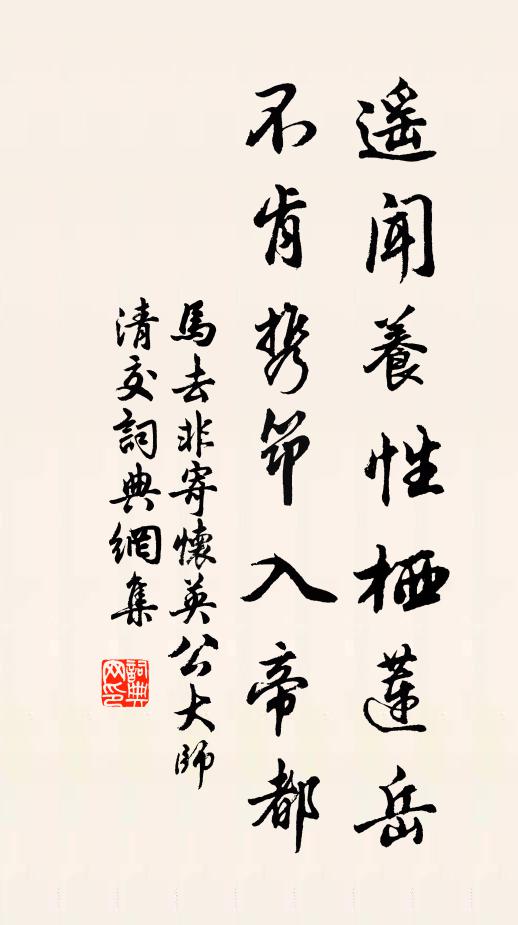 遥聞養性栖蓮岳
不肯携筇入帝都
馬去非寄懷英公大師
清交詞典網集
詞典
网印